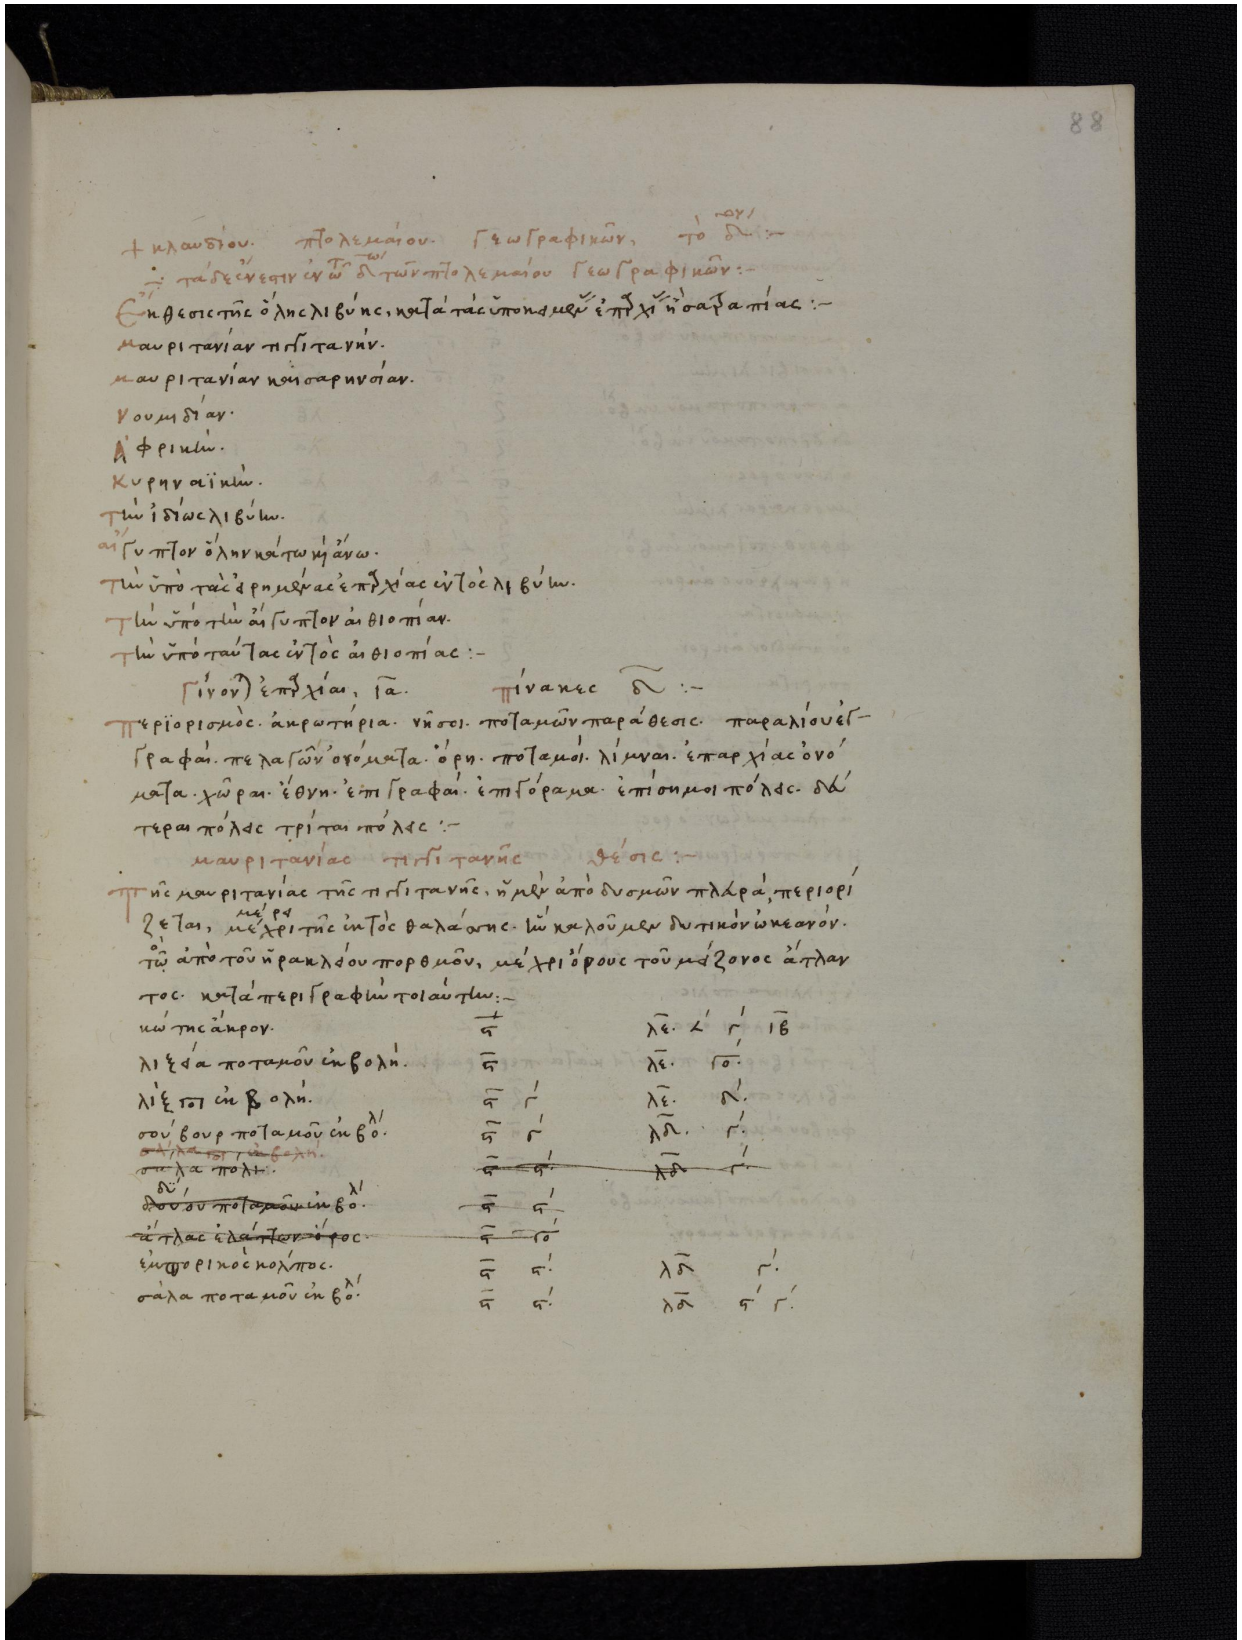 88
+ κλαυδίου. πτολεμαίου. γεωγραφικῶν, τὸ δ ον :~
÷ τάδε ἔνεστιν ἐν τῶ δ τω τῶν πτολεμαίου γεωγραφικῶν :~
Ἔκθεσις τῆς ὅλης λιβύης, κατὰ τὰς ὑποκειμέν ἐπαρχί ἢ σατραπίας :~
μαυριτανίαν τιγγιτανήν.
μαυριτανίαν καισαρηνσίαν.
νουμιδίαν.
Ἀφρικήν.
κυρηναϊκήν.
τὴν ἰδίως λιβύην.
αἴγυπτον ὅλην κάτω καὶ ἄνω.
τὴν ὑπὸ τὰς εἰρημένας ἐπαρχίας ἐντὸς λιβύην.
τὴν ὑπὸ τὴν αἴγυπτον αἰθιοπίαν.
τὴν ὑπὸ ταύτας ἐντὸς αἰθιοπίας :~
Γίνονται ἐπαρχίαι, ια. πίνακες δ :~
περϊορισμὸς. ἀκρωτήρια. νῆσοι. ποταμῶν παράθεσις. παραλίου ἐγ
γραφαί. πελαγῶν ὀνόματα. ὄρη. ποταμοί. λίμναι. ἐπαρχίας ὀνό
ματα. χῶραι. ἔθνη. ἐπιγραφαί. ἐπιγόραμα. ἐπίσημοι πόλεις. δεύ
τεραι πόλεις τρίται πόλεις :~
μαυριτανίας τιγγιτανῆς θέσις :~
τῆς μαυριτανίας τῆς τιγγιτανῆς, ἡ μὲν ἀπὸ δυσμῶν πλευρά, περιορί
ζεται, μέρει
μέχρι τῆς ἐκτὸς θαλάσσης. ἣν καλοῦμεν δυτικὸν ὠκεανόν.
τῶ ἀπὸ τοῦ ἡρακλείου πορθμοῦ, μέχρι ὄρους τοῦ μείζονος ἄτλαν
τος. κατὰ περιγραφὴν τοιαύτην :~
κώτης ἄκρον. ϛ λε. 𐅵 γ ιβ
λιξεία ποταμοῦ ἐκβολή. ϛ λε. γο.
λίξ ἐκβολή. ϛ γ λε. δ.
σούβουρ ποταμοῦ ἐκβολ. ϛ γ λδ. γ.
σάλα πολι. ϛ ϛ. λδ γ.
δούου ποταμοῦ ἐκβολ. ϛ ϛ
ἄτλας ἐλάττων ὄρος. ϛ γο
ἐμπορικὸς κόλπος. ϛ ϛ. λδ γ.
σάλα ποταμοῦ ἐκβολ. ϛ ϛ. λδ ϛ γ.